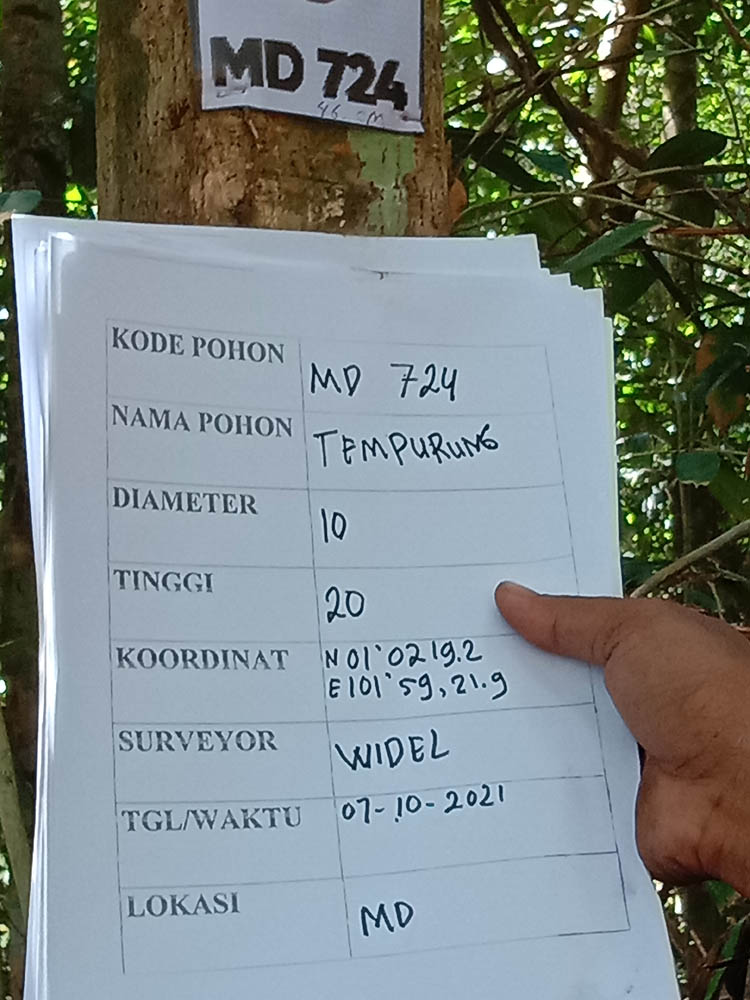 MD 724
46 cm
KODE POHON MD 724
NAMA POHON TEMPURUNG
DIAMETER 10
TINGGI 20
KOORDINAT N 01°0219.2
E 101°59,21.9
SURVEYOR WIDEL
TGL/WAKTU 07-10-2021
LOKASI MD